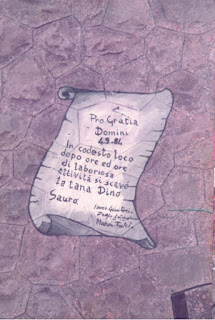 Pro Gratia
Domini
4.9.84
In codesto loco
dopo ore ed ore
di laboriosa
attività si scavò
la tana Dino
Sauro.